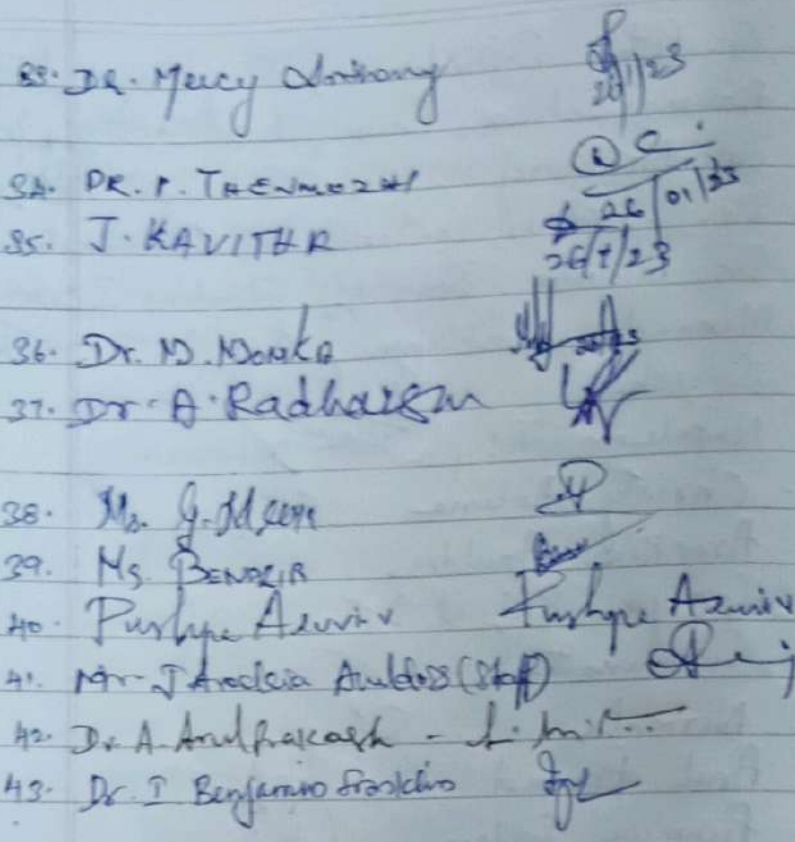 33. DR. Mercy Anthony 26/1/23
34. DR. P. THENMOZHI 26/01/23
35. J. KAVITHA 26/1/23
36. Dr. M. Monika
37. Dr. A. Radha
38. Ms. G. Meena
39. Ms. BENAZIR
40. Pushpa Aruviv Pushpa Aruviv
41. Mr. J Arockia Aruldoss (Staff)
42. Dr. A. Arul Prakash -
43. Dr. I Benjamin Franklin